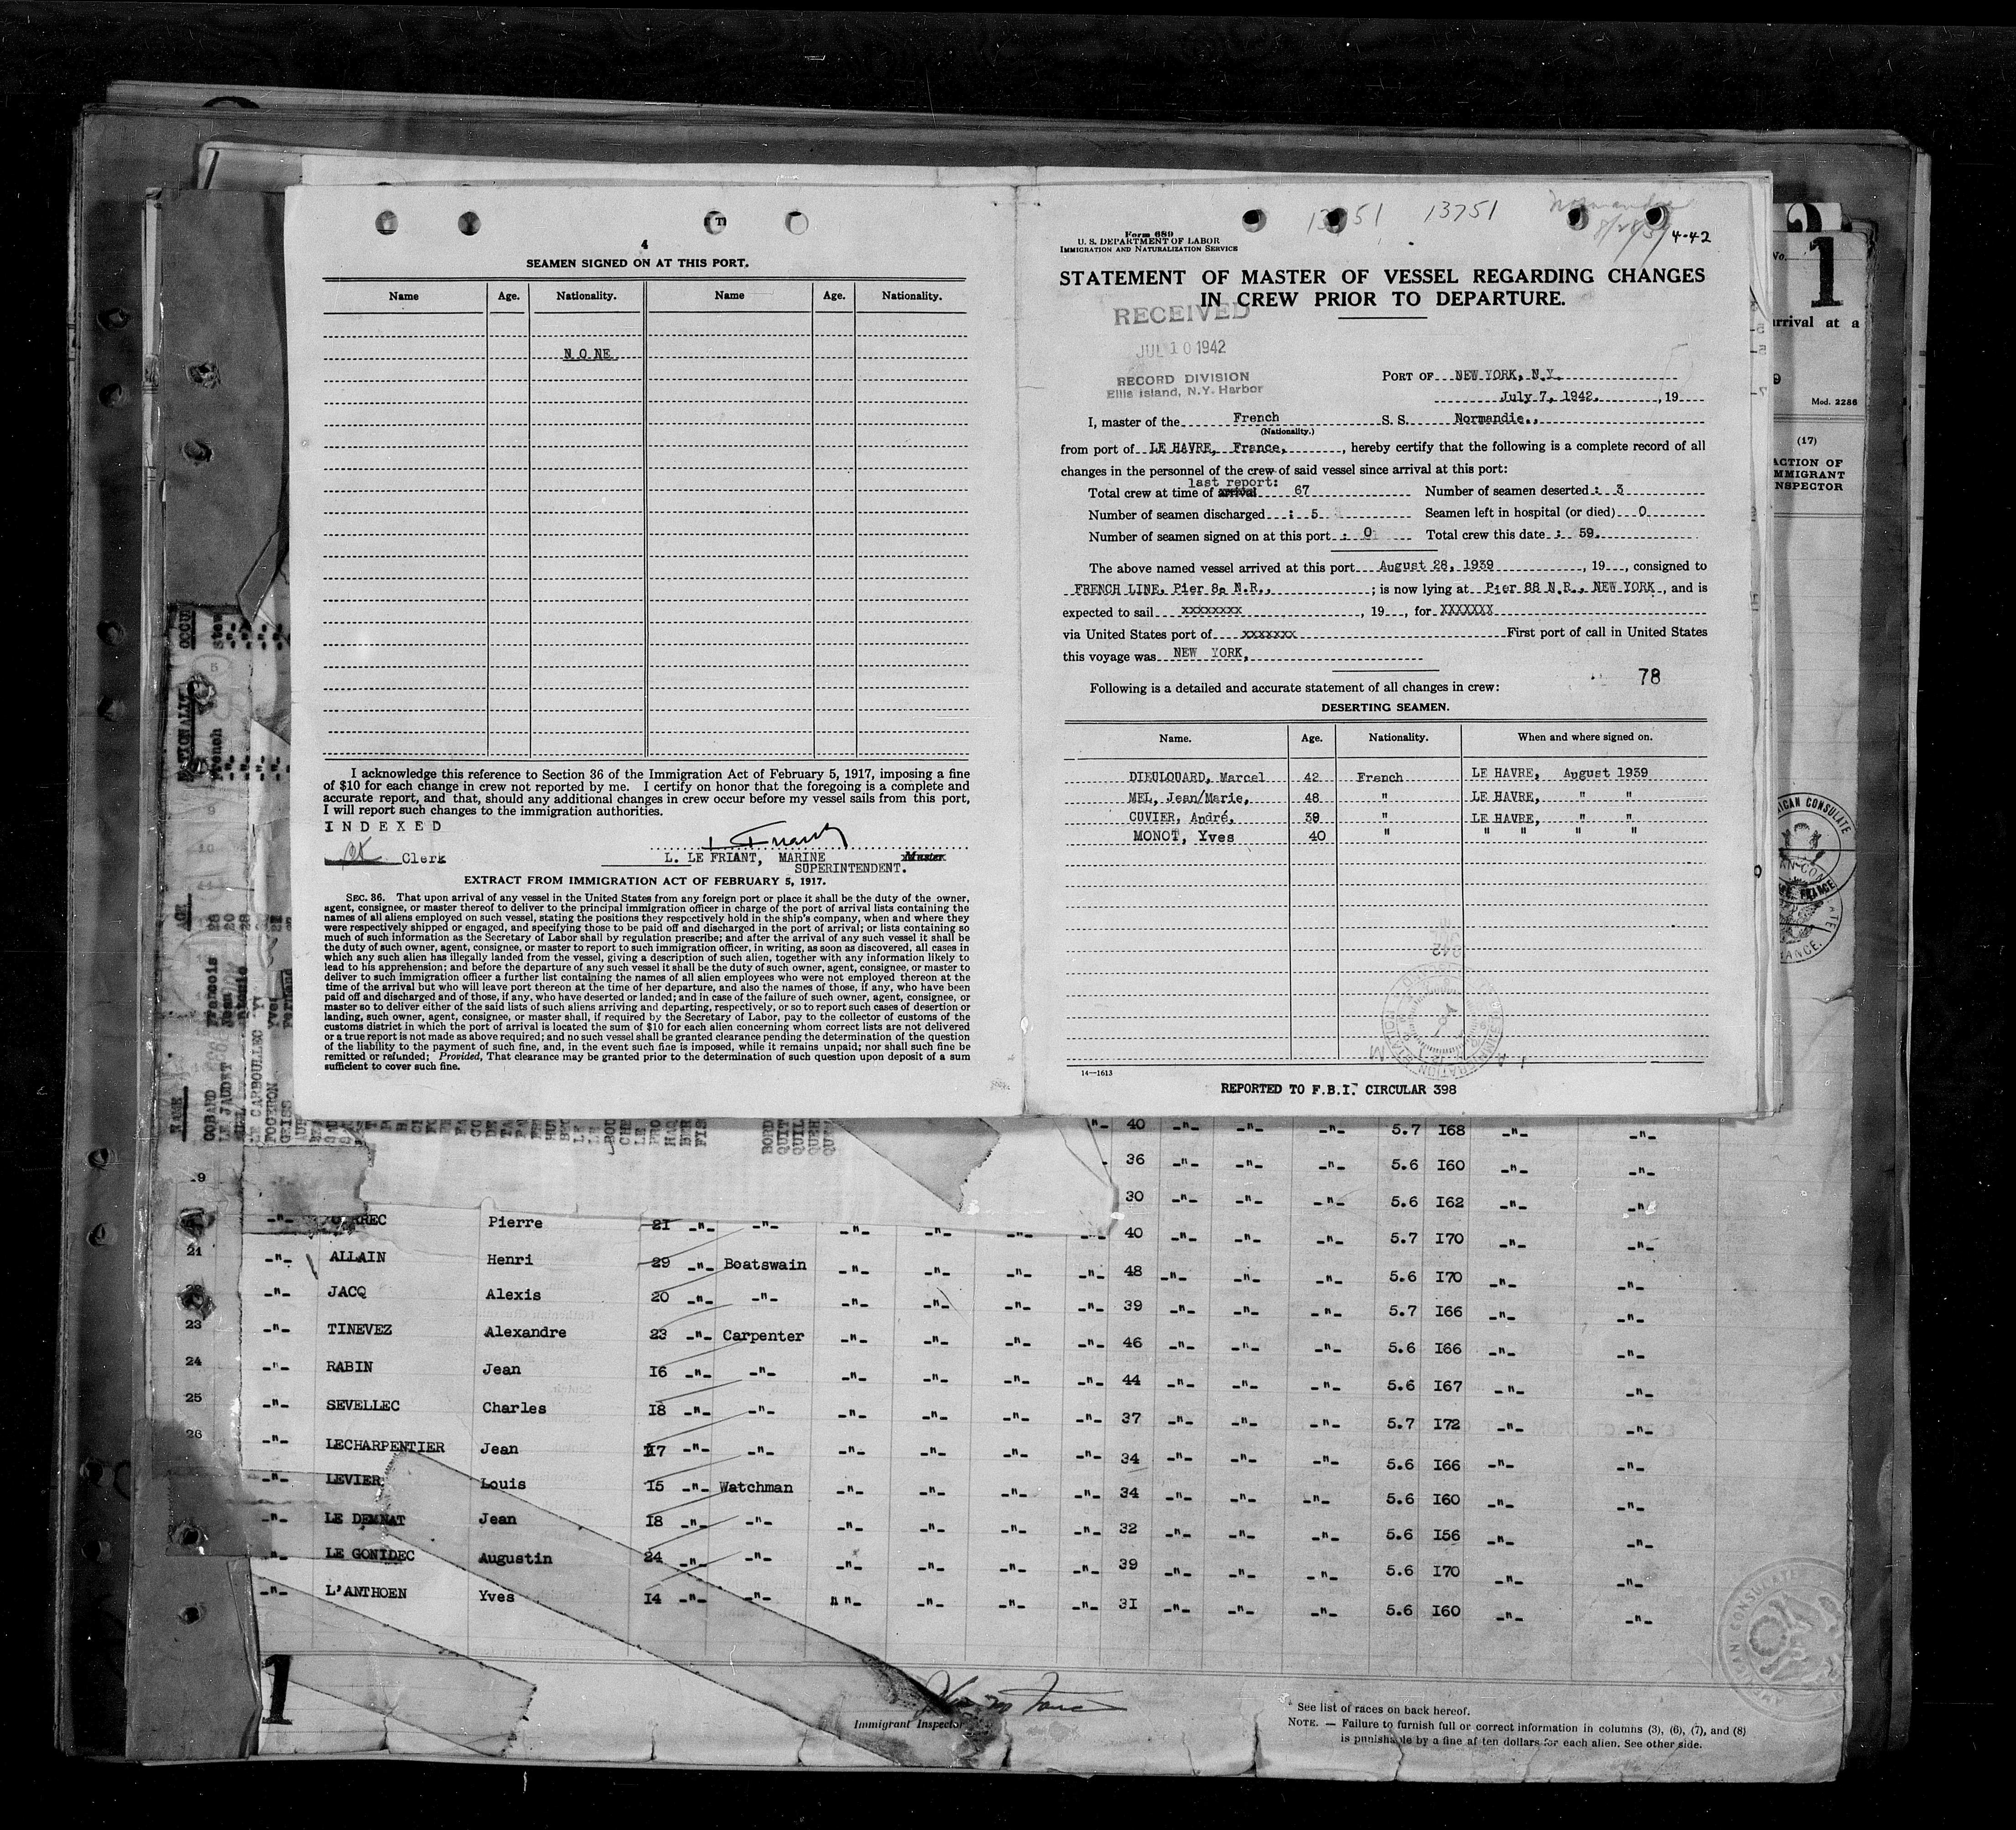 4
SEAMEN SIGNED ON AT THIS PORT.
Name Age. Nationality. Name Age. Nationality.
NONE
I acknowledge this reference to Section 36 of the Immigration Act of February 5, 1917, imposing a fine
of $10 for each change in crew not reported by me. I certify on honor that the foregoing is a complete and
accurate report, and that, should any additional changes in crew occur before my vessel sails from this port,
I will report such changes to the immigration authorities.
INDEXED
Clerk
L. LE FRIANT, MARINE Master
SUPERINTENDENT.
EXTRACT FROM IMMIGRATION ACT OF FEBRUARY 5, 1917.
SEC. 36. That upon arrival of any vessel in the United States from any foreign port or place it shall be the duty of the owner,
agent, consignee, or master thereof to deliver to the principal immigration officer in charge of the port of arrival lists containing the
names of all aliens employed on such vessel, stating the positions they respectively hold in the ship's company, when and where they
were respectively shipped or engaged, and specifying those to be paid off and discharged in the port of arrival; or lists containing so
much of such information as the Secretary of Labor shall by regulation prescribe; and after the arrival of any such vessel it shall be
the duty of such owner, agent, consignee, or master to report to such immigration officer, in writing, as soon as discovered, all cases in
which any such alien has illegally landed from the vessel, giving a description of such alien, together with any information likely to
lead to his apprehension; and before the departure of any such vessel it shall be the duty of such owner, agent, consignee, or master to
deliver to such immigration officer a further list containing the names of all alien employees who were not employed thereon at the
time of the arrival but who will leave port thereon at the time of her departure, and also the names of those, if any, who have been
paid off and discharged and of those, if any, who have deserted or landed; and in case of the failure of such owner, agent, consignee, or
master so to deliver either of the said lists of such aliens arriving and departing, respectively, or so to report such cases of desertion or
landing, such owner, agent, consignee, or master shall, if required by the Secretary of Labor, pay to the collector of customs of the
customs district in which the port of arrival is located the sum of $10 for each alien concerning whom correct lists are not delivered
or a true report is not made as above required; and no such vessel shall be granted clearance pending the determination of the question
of the liability to the payment of such fine, and, in the event such fine is imposed, while it remains unpaid; nor shall such fine be
remitted or refunded; Provided, That clearance may be granted prior to the determination of such question upon deposit of a sum
sufficient to cover such fine.
13751 13751 Normandie
4-42
Form 689
U. S. DEPARTMENT OF LABOR
IMMIGRATION AND NATURALIZATION SERVICE
STATEMENT OF MASTER OF VESSEL REGARDING CHANGES
IN CREW PRIOR TO DEPARTURE.
RECEIVED
JUL 10 1942
RECORD DIVISION
Ellis Island, N.Y. Harbor
PORT OF NEW YORK, N.Y.
July 7, 1942. , 19
I, master of the French S. S. Normandie.,
(Nationality.)
from port of LE HAVRE, France, , hereby certify that the following is a complete record of all
changes in the personnel of the crew of said vessel since arrival at this port:
last report:
Total crew at time of arrival 67 Number of seamen deserted : 3
Number of seamen discharged : 5 Seamen left in hospital (or died) 0
Number of seamen signed on at this port : 0 Total crew this date : 59.
The above named vessel arrived at this port August 28, 1939 , 19 , consigned to
FRENCH LINE, Pier 88 N.R., ; is now lying at Pier 88 N.R., NEW YORK , and is
expected to sail xxxxxxxx , 19 , for XXXXXXX
via United States port of xxxxxxx First port of call in United States
this voyage was NEW YORK,
78
Following is a detailed and accurate statement of all changes in crew:
DESERTING SEAMEN.
Name. Age. Nationality. When and where signed on.
DIEULOUARD, Marcel 42 French LE HAVRE, August 1939
MEL, Jean/Marie, 48 " LE HAVRE, " "
CUVIER, André, 39 " LE HAVRE, " "
MONOT, Yves 40 " " " " "
14—1613
REPORTED TO F.B.I. CIRCULAR 398
1
arrival at a
Mod. 2286
(17)
ACTION OF
IMMIGRANT
INSPECTOR
40 -"- -"- -"- 5.7 I68 -"- -"-
36 -"- -"- -"- 5.6 I60 -"- -"-
30 -"- -"- -"- 5.6 I62 -"- -"-
-"- Pierre 21 -"- -"- -"- -"- -"- -"- 40 -"- -"- -"- 5.7 I70 -"- -"-
21 -"- ALLAIN Henri 29 -"- Boatswain -"- -"- -"- -"- 48 -"- -"- -"- 5.6 I70 -"- -"-
-"- JACQ Alexis 20 -"- -"- -"- -"- -"- -"- 39 -"- -"- -"- 5.7 I66 -"- -"-
23 -"- TINEVEZ Alexandre 23 -"- Carpenter -"- -"- -"- -"- 46 -"- -"- -"- 5.6 I66 -"- -"-
24 -"- RABIN Jean I6 -"- -"- -"- -"- -"- -"- 44 -"- -"- -"- 5.6 I67 -"- -"-
25 -"- SEVELLEC Charles I8 -"- -"- -"- -"- -"- -"- 37 -"- -"- -"- 5.7 I72 -"- -"-
26 -"- LECHARPENTIER Jean I7 -"- -"- -"- -"- -"- -"- 34 -"- -"- -"- 5.6 I66 -"- -"-
-"- LEVIER Louis I5 -"- Watchman -"- -"- -"- -"- 34 -"- -"- -"- 5.6 I60 -"- -"-
-"- LE DEMNAT Jean I8 -"- -"- -"- -"- -"- -"- 32 -"- -"- -"- 5.6 I56 -"- -"-
-"- LE GONIDEC Augustin 24 -"- -"- -"- -"- -"- -"- 39 -"- -"- -"- 5.6 I70 -"- -"-
-"- L'ANTHOEN Yves I4 -"- -"- -"- -"- -"- -"- 3I -"- -"- -"- 5.6 I60 -"- -"-
1
Immigrant Inspector
* See list of races on back hereof.
NOTE. — Failure to furnish full or correct information in columns (3), (6), (7), and (8)
is punishable by a fine af ten dollars for each alien. See other side.